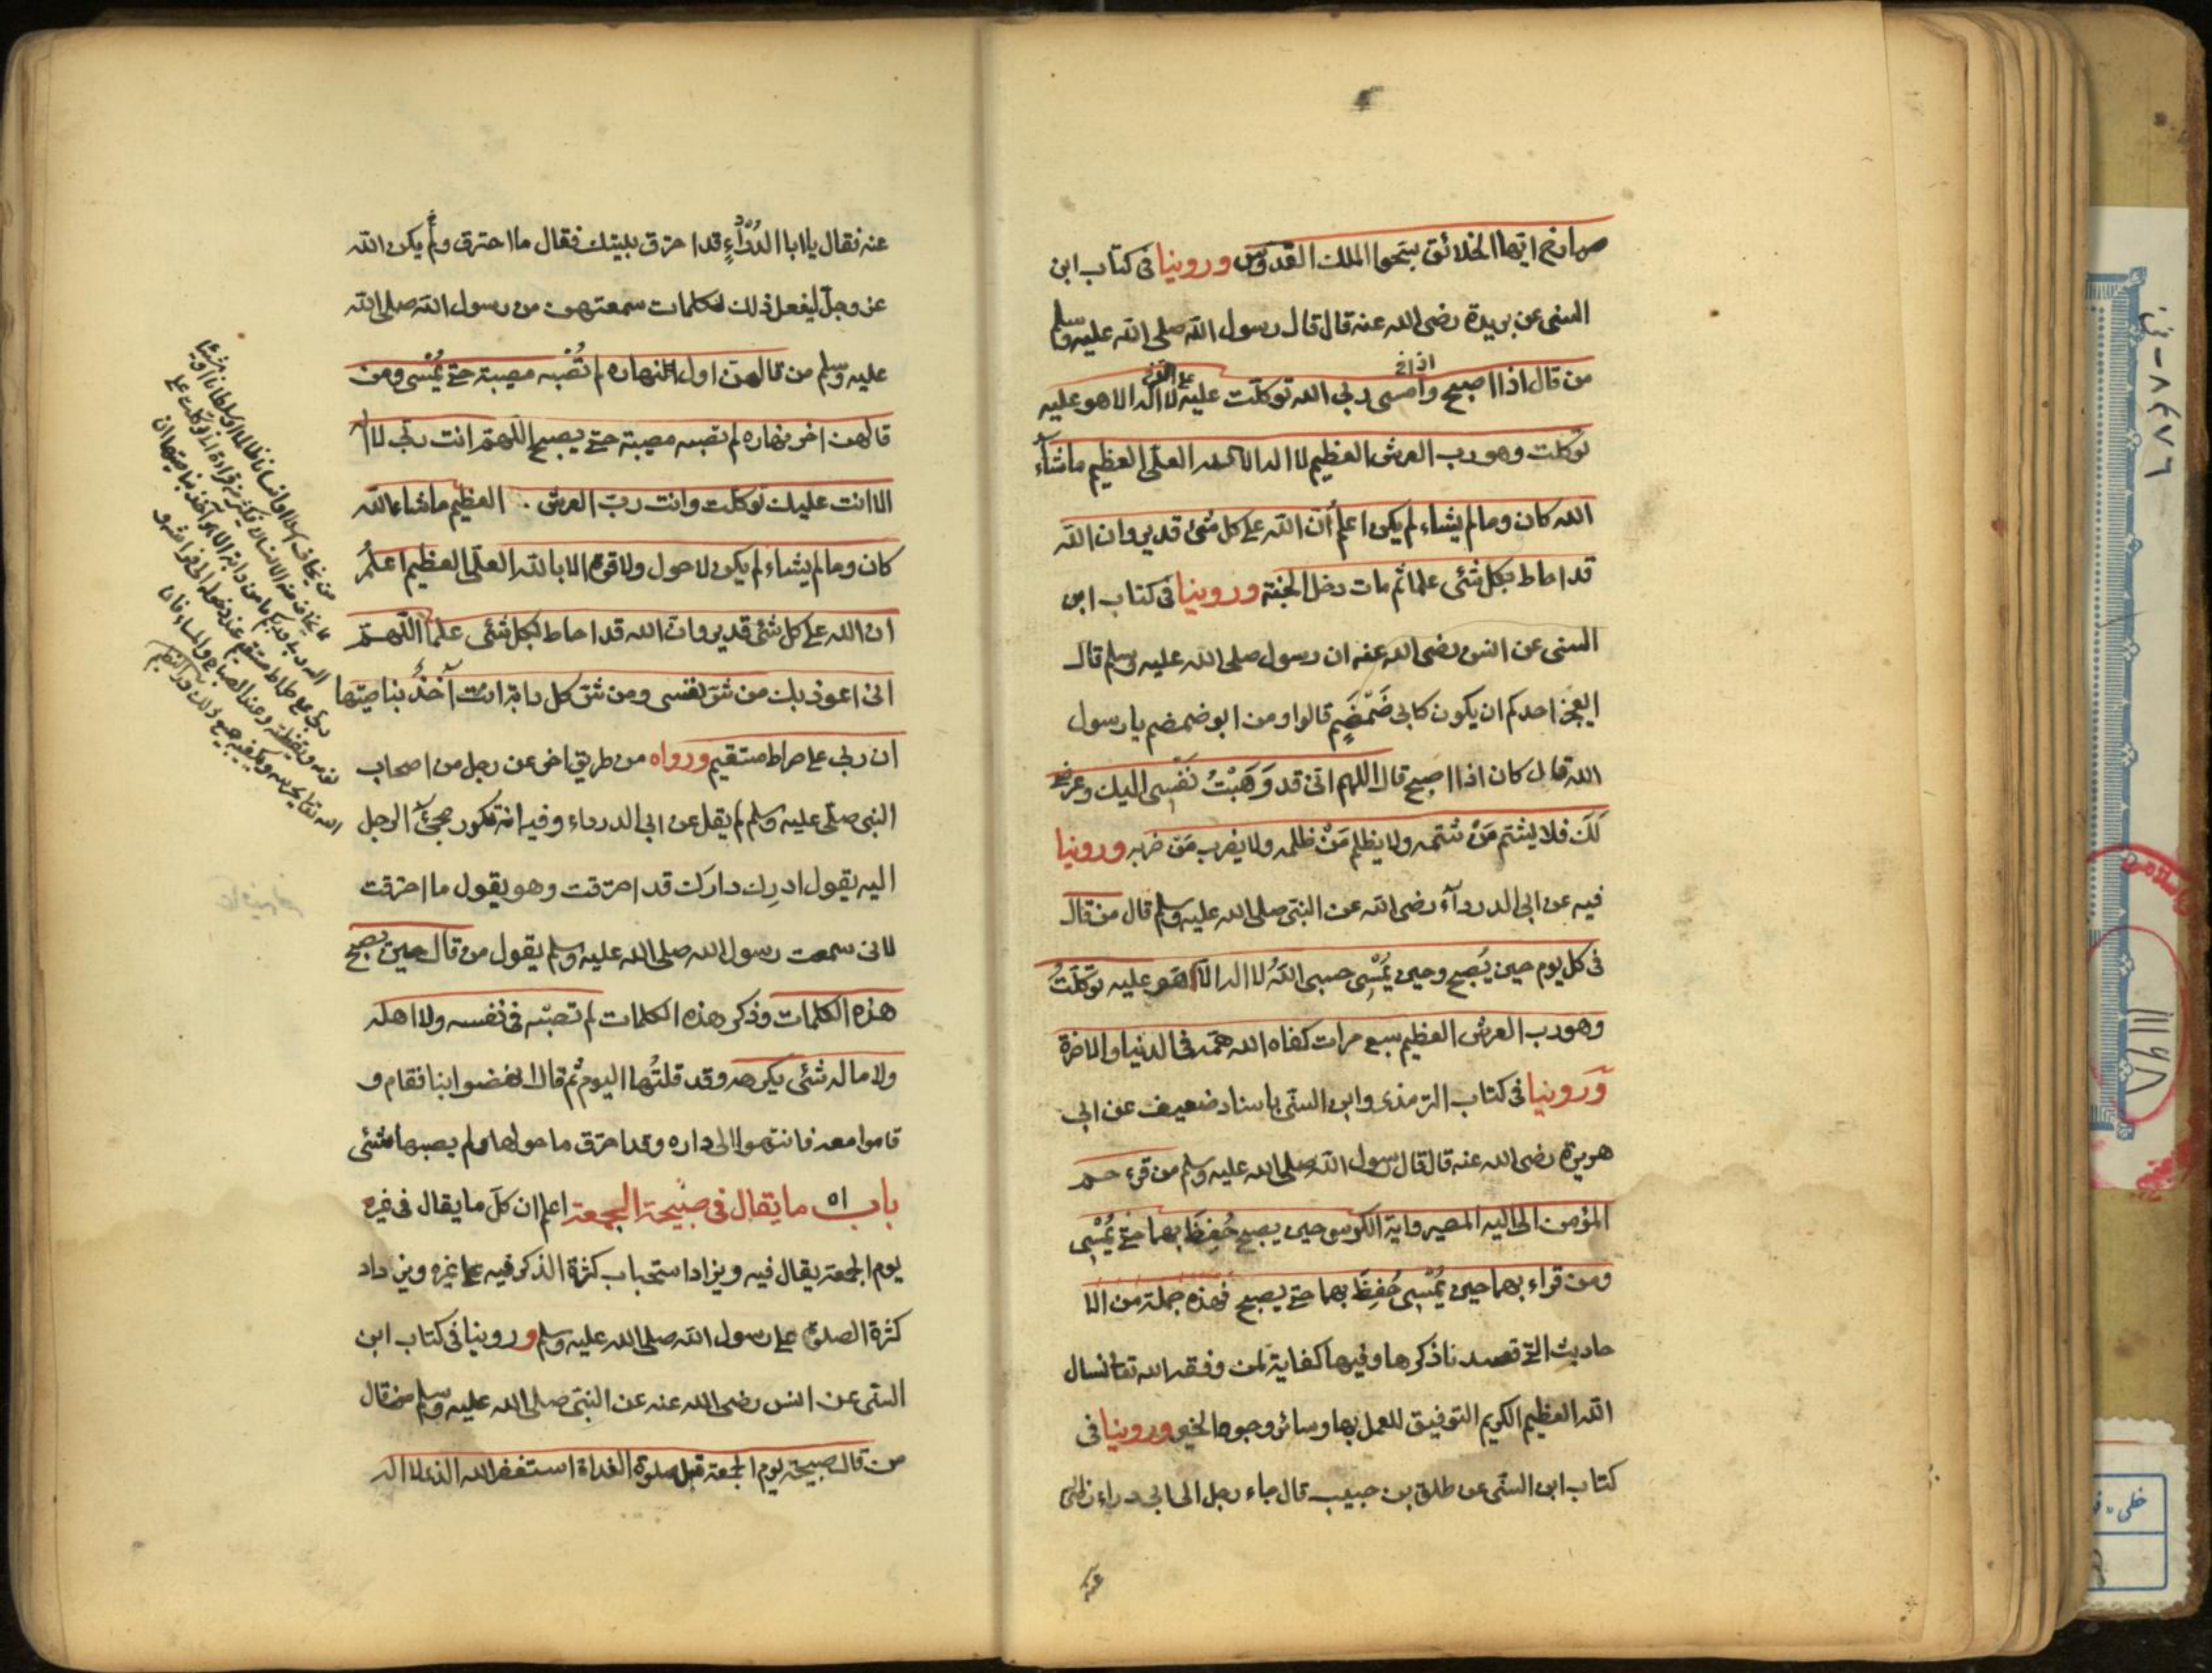 صارخ ايها الخلائق سبحوا الملك القدوس وروينا فى كتاب ابن
السنى عن بريدة رضى الله عنه قال قال رسول الله صلى الله عليه وسلم
من قال اذا اصبح وامسى ربى الله توكلت عليه لا اله الا هو عليه
توكلت وهو رب العرش العظيم لا اله الا الله العلى العظيم ماشآء
الله كان وما لم يشاء لم يكن اعلم أن الله على كل شئ قدير وان الله
قد احاط بكل شئ علما ثم مات دخل الجنة وروينا فى كتاب ابن
السنى عن انس رضى الله عنه ان رسول صلى الله عليه وسلم قال
ايعجز احدكم ان يكون كابى ضَمْضَمٍ قالوا ومن ابو ضمضم يا رسول
الله قال كان اذا اصبح قال اللهم انى قد وَهَبْتُ نَفْسِى اليك وعرضى
لَكَ فلا يشتم مَنْ شتمه ولا يظلم مَنْ ظلمه ولا يضرب مَنْ ضربه وروينا
فيه عن ابى الدردآء رضى الله عن النبى صلى الله عليه وسلم قال من قال
فى كل يوم حين يُصبح وحين يُمْسِى حسبى اللهُ لا اله الّا هو عليه توكلتُ
وهو رب العرش العظيم سبع مرات كفاه الله همّه فى الدنيا والاخرة
وَرَوينا فى كتاب الترمذى وابن السنّى باسناد ضعيف عن ابى
هريرة رضى الله عنه قال قال رسول الله صلى الله عليه وسلم من قرء حم
المؤمن الى اليه المصير واية الكرسى حين يصبح حُفِظَ بهما حتى يُمْسِى
ومن قراء بهما حين يُمْسِى حُفِظَ بهما حتى يصبح فهذه جملة من الا
حاديث التى قصدنا ذكرها وفيها كفاية لمن وفقه الله تعا نسال
الله العظيم الكريم التوفيق للعمل بها وسائر وجوه الخير وروينا فى
كتاب ابن السنّى عن طلق بن حبيب قال جاء رجل الى ابى درداء رضى
عنه
عنه فقال يا ابا الدرداءِ قد احترق بيتك فقال ما احترق ولم يكن الله
عز وجل ليفعل ذلك لكلمات سمعتهن من رسول الله صلى الله
عليه وسلم من قالهن اول النهاره لم تُصْبه مصيبة حتى يُمْسى ومن
قالهن اخر نهاره لم تصبه مصيبة حتى يصبح اللهمّ انت ربى لا اله
الا انت عليك توكلت وانت ربّ العرش . العظيم ماشاء الله
كان وما لم يشاء لم يكن لا حول ولا قوة الا بالله العلى العظيم اعلمُ
ان الله على كل شئ قدير وان الله قد احاط بكل شئى علما اللّهمّ
انى اعوذ بك من شر نفسى ومن شر كل دابة انت آخذٌ بناصيتها
ان ربى على صراط مستقيم ورواه من طريق اخر عن رجل من اصحاب
النبى صلّى عليه وسلم لم يقل عن ابى الدرداء وفيه انه تكرر مجئ الرجل
اليه يقول ادرِك دارك قد احترقت وهو يقول ما احترقت
لانى سمعت رسول الله صلى الله عليه وسلم يقول من قال حين يصبح
هذه الكلمات وذكر هذه الكلمات لم تصبْه فى نفسه ولا اهله
ولا ماله شئى يكرهه وقد قلتُها اليوم ثم قال انهضوا بنا فقام و
قاموا معه فانتهوا الى داره وقد احترق ما حولها ولم يصبها شئى
باب اه ما يقال فى صبيحة الجمعة اعلم ان كلّ ما يقال فى غيره
يوم الجمعة يقال فيه ويزاد استحباب كثرة الذكر فيه على غيره ويزداد
كثرة الصلوة على رسول الله صلى الله عليه وسلم وروينا فى كتاب ابن
السنّى عن انس رضى الله عنه عن النبى صلى الله عليه وسلم
من قال صبيحة يوم الجمعة قبل صلوة الغداة استغفر الله الذى لا اله